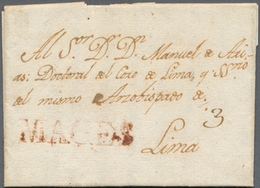 Al S.or D.r D.n Manuel de Ari-
as: Doctoral del Coro de Lima, y S.rio
del mismo Arzobispado de
3
Lima